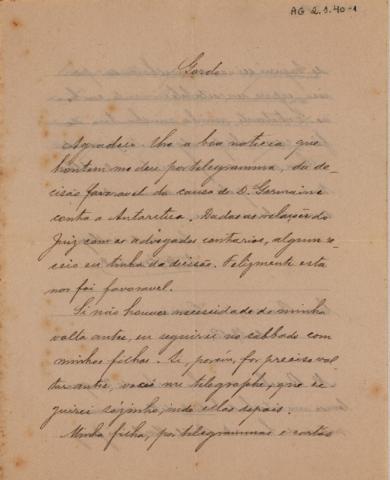 AG 2.3.40-1
Gordo
Agradeço-lhe a boa noticia que
hontem me deu por telegramma, da de-
cisão favoravel da causa de D. Germaine
contra a Antarctica. Dadas as relações do
Juiz com os advogados contrarios, algum re-
ceio eu tinha da decisão. Felizmente esta
nos foi favoravel.
Si não houver necessidade de minha
volta antes, eu seguirei no sabbado com
minhas filhas. Si, porém, for preciso vol-
tar antes, você me telegraphe, que se-
guirei sózinho, indo ellas depois.
Minha filha, por telegrammas e cartas